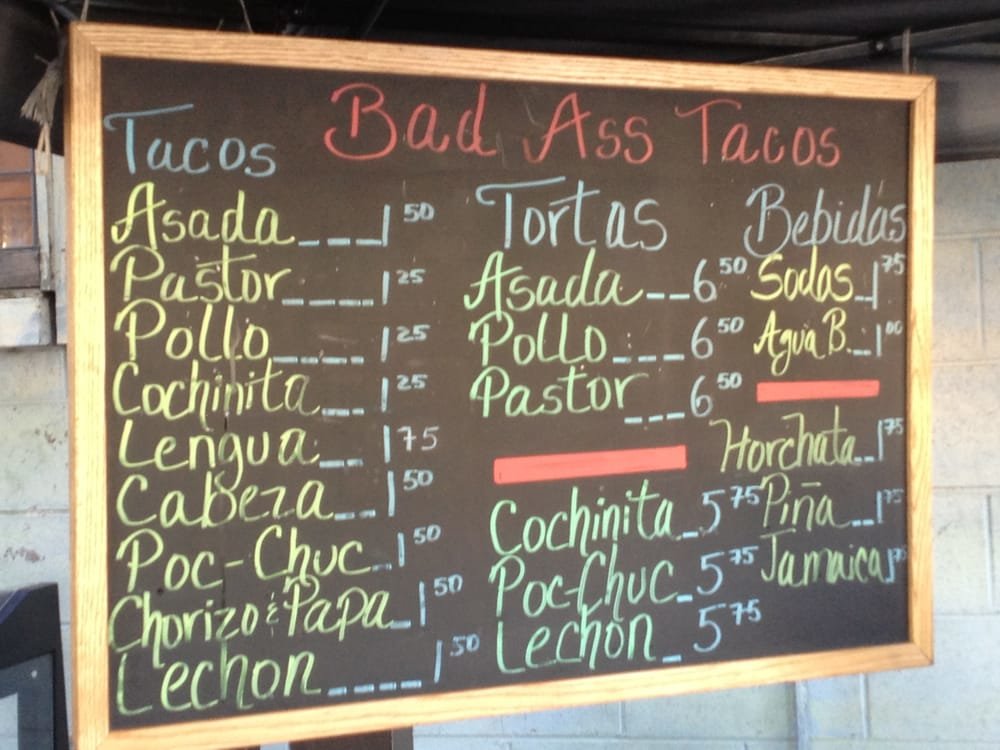 Bad Ass Tacos
Tacos
Asada___1 50
Pastor____1 25
Pollo____1 25
Cochinita___1 25
Lengua__1 75
Cabeza__1 50
Poc-Chuc_1 50
Chorizo & Papa_1 50
Lechon____1 50
Tortas
Asada__6 50
Pollo___6 50
Pastor___6 50
Cochinita_5 75
Poc-Chuc_5 75
Lechon_5 75
Bebidas
Sodas_1 75
Agua B._1 00
Horchata__1 75
Piña__1 75
Jamaica_1 75